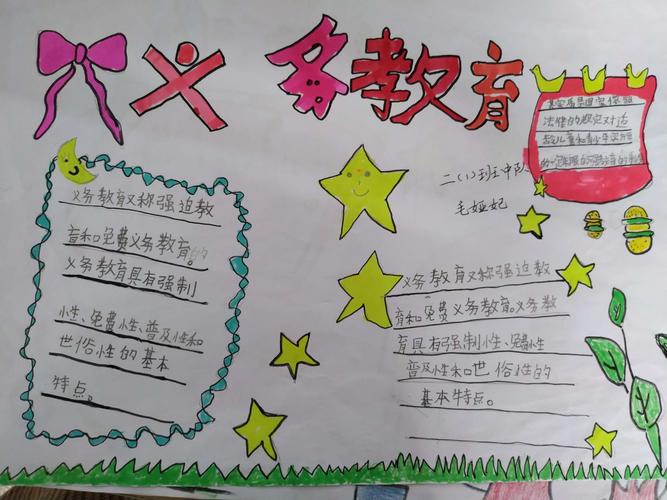 义务教育
二(1)班中队
毛娅妃
义务教育又称强迫教
育和免费义务教育。的
义务教育具有强制
性、免费性、普及性和
世俗性的基本
特点。
法律的规定对适
龄儿童和青少年实施
义务教育又称强迫教
育和免费义务教育。义务教
育具有强制性、免费性
普及性和世俗性的
基本特点。